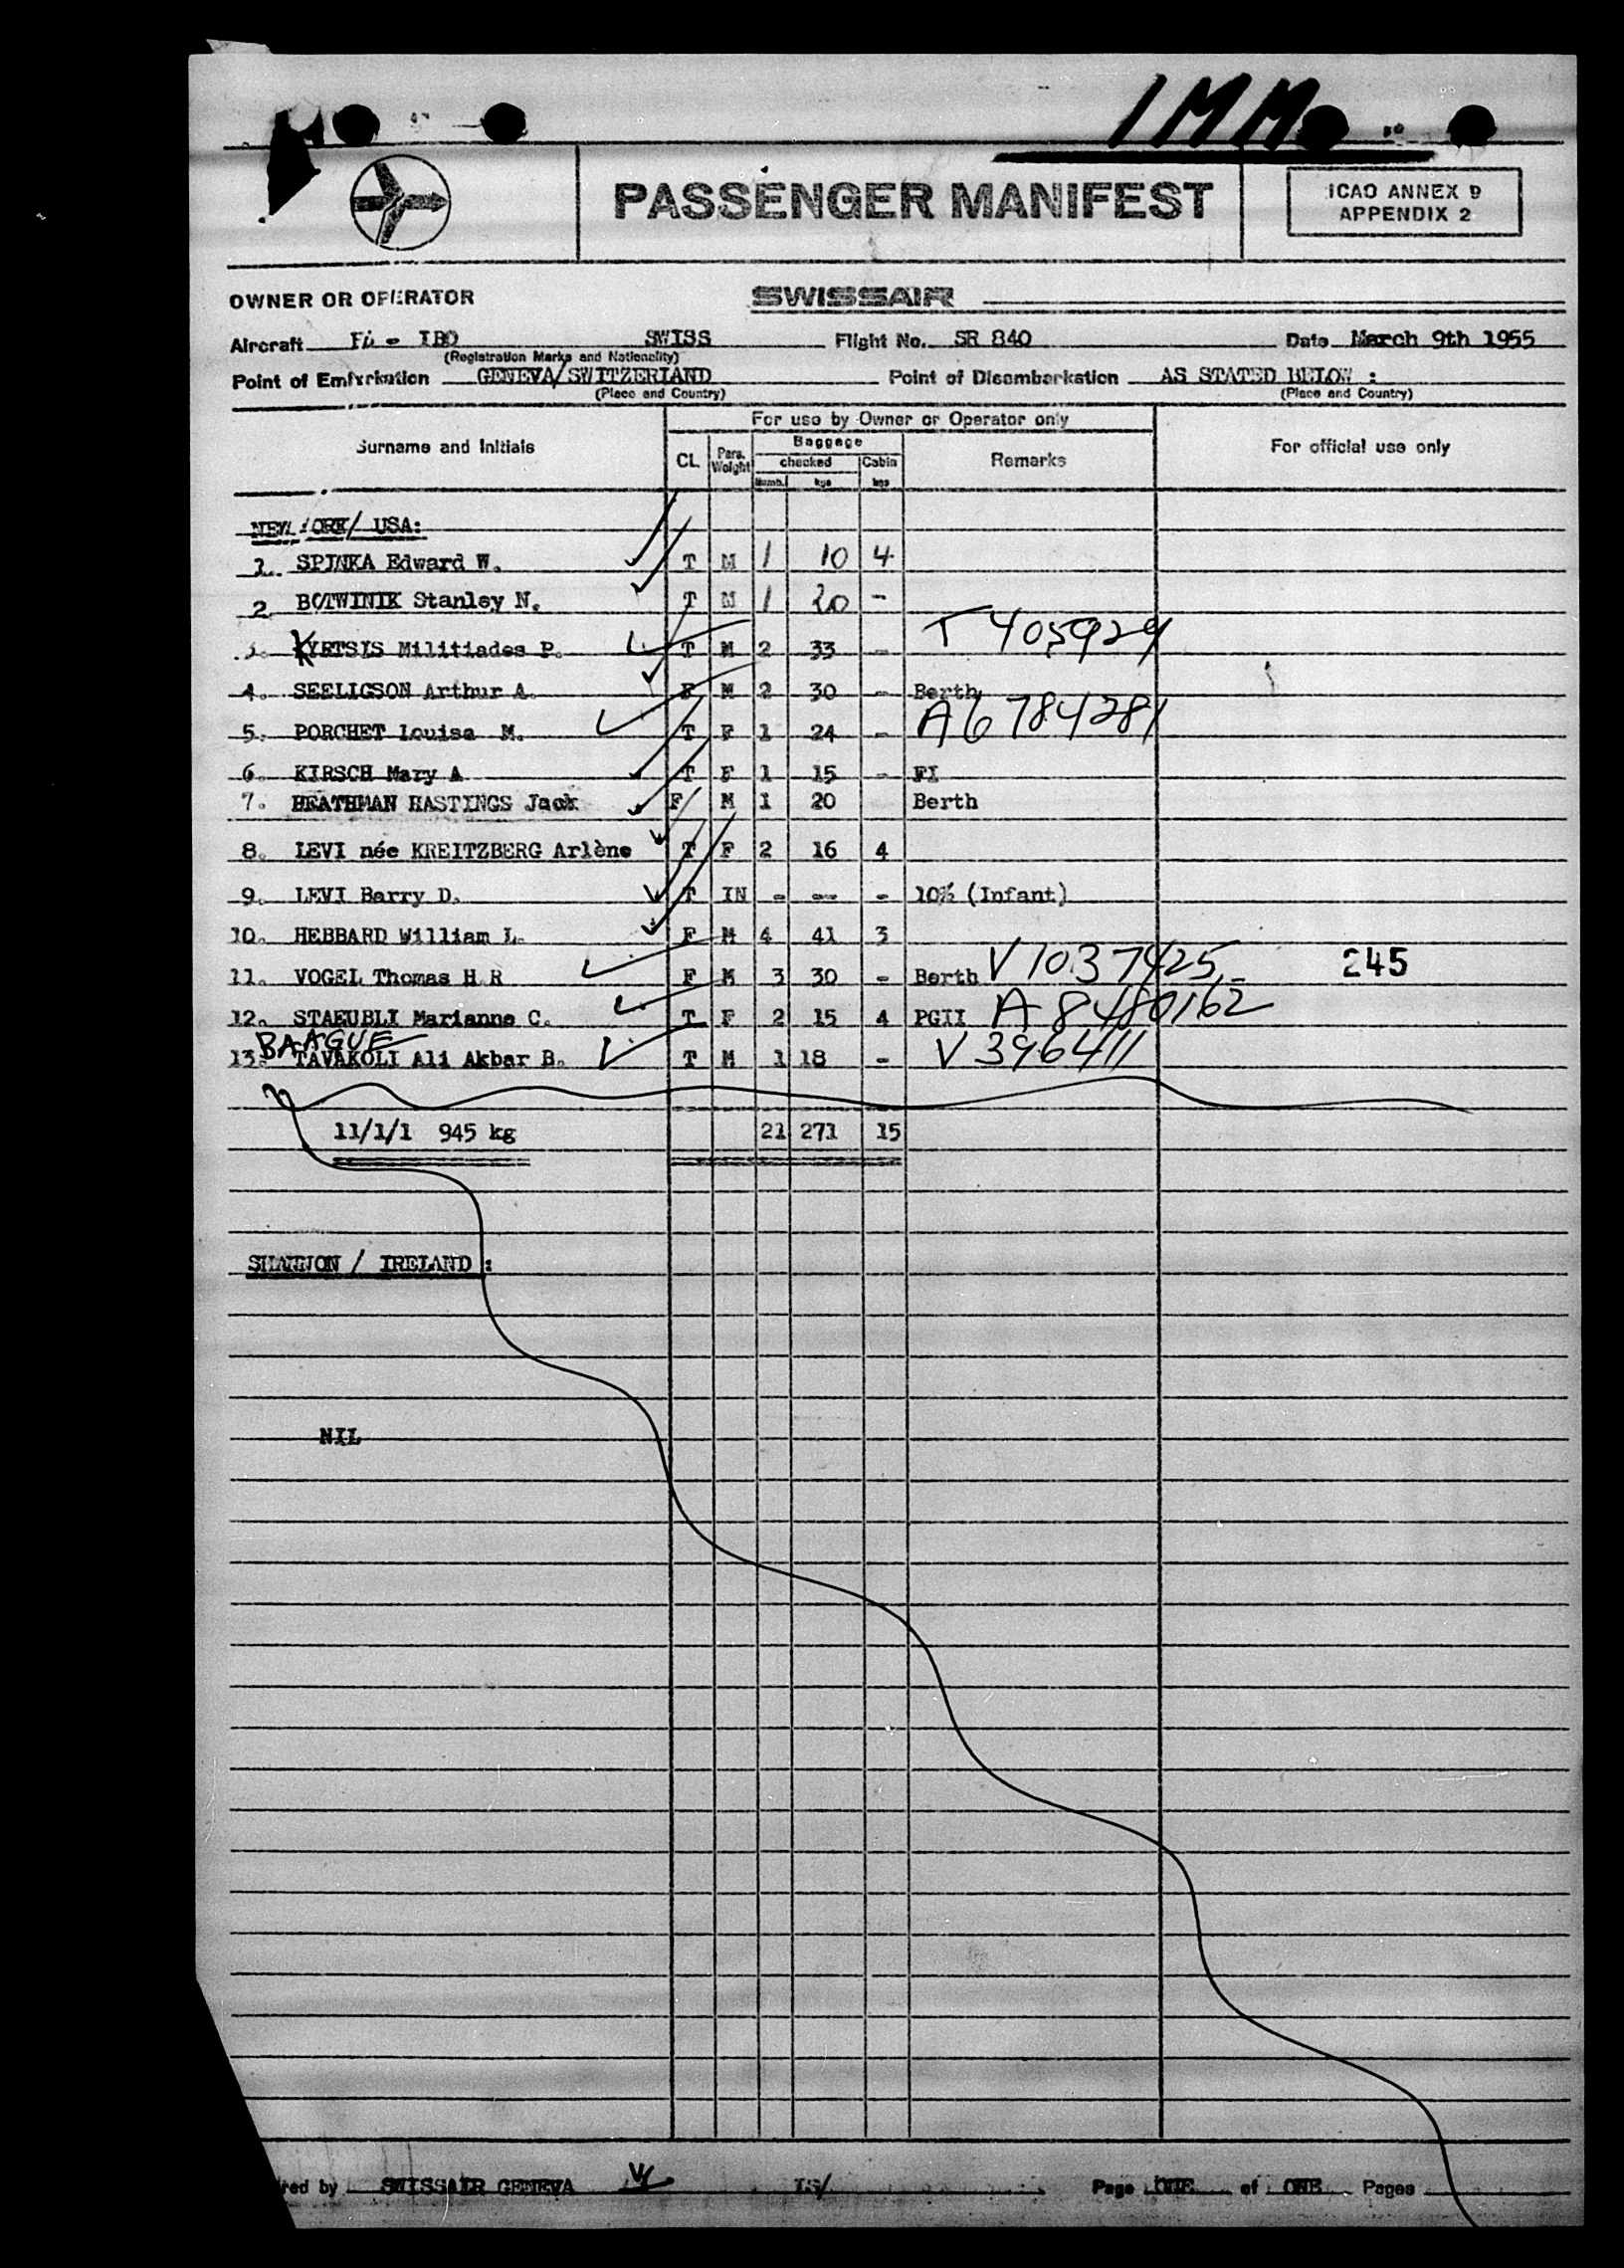 IMM
PASSENGER MANIFEST
ICAO ANNEX 9
APPENDIX 2
OWNER OR OPERATOR SWISSAIR
Aircraft - IBO SWISS Flight No. SR 840 Date March 9th 1955
(Registration Marks and Nationality)
Point of Embarkation GENEVA/SWITZERLAND Point of Disembarkation AS STATED BELOW :
(Place and Country) (Place and Country)
For use by Owner or Operator only
Surname and Initials CL. Pers. Weight Baggage Remarks For official use only
checked Cabin
Numb. kgs kgs
NEW YORK/ USA:
1. SPINKA Edward W. T M 1 10 4
2. BOTWINIK Stanley N. T M 1 20 -
3. KYRTSIS Militiades P. T M 2 33 - T 405929
4. SEELIGSON Arthur A. F M 2 30 - Berth
5. PORCHET Louise M. T F 1 24 - A6 784281
6. KIRSCH Mary A T F 1 15 - FI
7. HEATHMAN HASTINGS Jack F M 1 20 Berth
8. LEVI née KREITZBERG Arlène T F 2 16 4
9. LEVI Barry D. T IN - -- - 10% (Infant)
10. HEBBARD William L. F M 4 41 3
11. VOGEL Thomas H R F M 3 30 - Berth V1037425 245
12. STAEUBLI Marianne C. T F 2 15 4 PGII A8480162
BAAGUE
13. TAVAKOLI Ali Akbar B. T M 1 18 - V 396411
11/1/1 945 kg 21 271 15
SHANNON / IRELAND :
NIL
red by SWISSAIR GENEVA IS/ Page ONE of ONE Pages